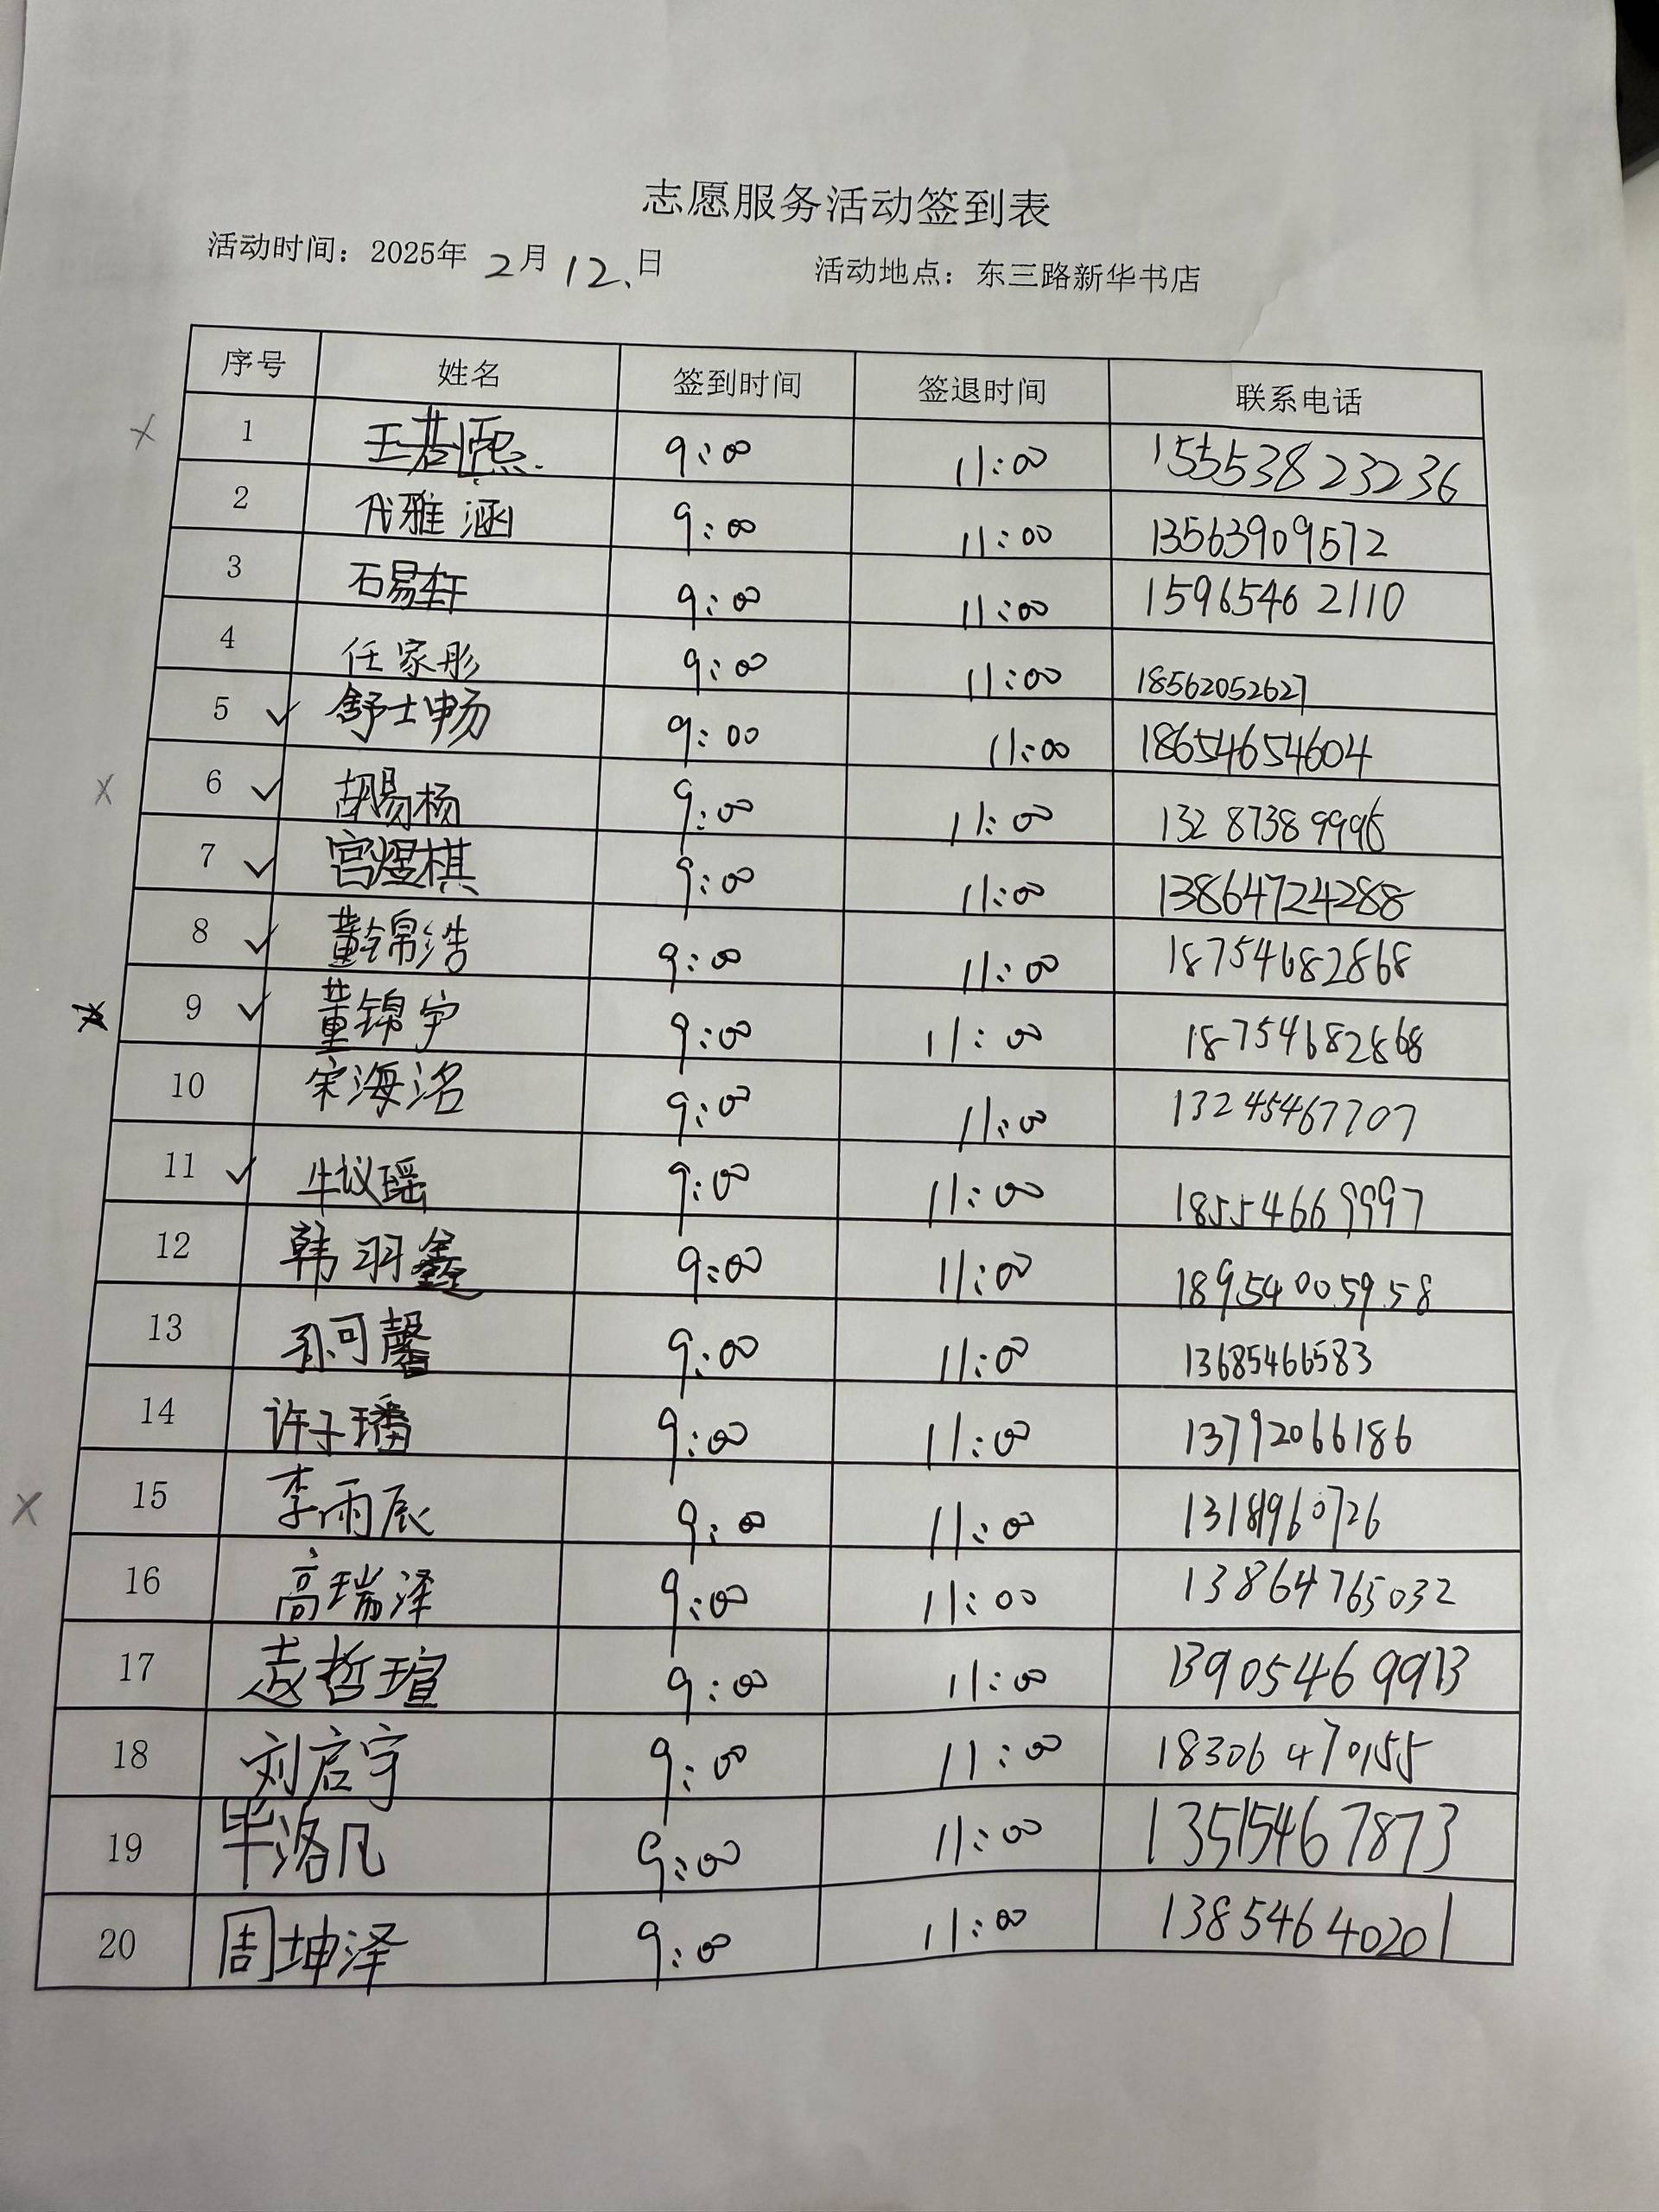 志愿服务活动签到表
活动时间：2025年 2月 12、日 活动地点：东三路新华书店
序号 姓名 签到时间 签退时间 联系电话
1 王若熙 9:00 11:00 15553823236
2 代雅涵 9:00 11:00 13563909572
3 石易轩 9:00 11:00 15965462110
4 任家彤 9:00 11:00 18562052627
5 ✓ 舒士畅 9:00 11:00 18654654604
6 ✓ 胡易杨 9:00 11:00 13287389996
7 ✓ 宫煜棋 9:00 11:00 13864724288
8 ✓ 董锦浩 9:00 11:00 18754682868
9 ✓ 董锦宇 9:00 11:00 18754682868
10 宋海洺 9:00 11:00 13245467707
11 ✓ 牛议瑶 9:00 11:00 18554669997
12 韩羽鑫 9:00 11:00 18954005958
13 孙可馨 9:00 11:00 13685466583
14 许子璠 9:00 11:00 13792066186
15 李雨辰 9:00 11:00
16 高瑞泽 9:00 11:00 13864765032
17 赵哲瑄 9:00 11:00 13905469913
18 刘启宇 9:00 11:00 18306470155
19 毕洛凡 9:00 11:00 13515467873
20 周坤泽 9:00 11:00 13854640201